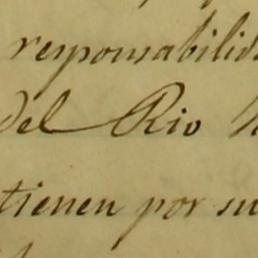 responsabilid
del Rio
tienen por su